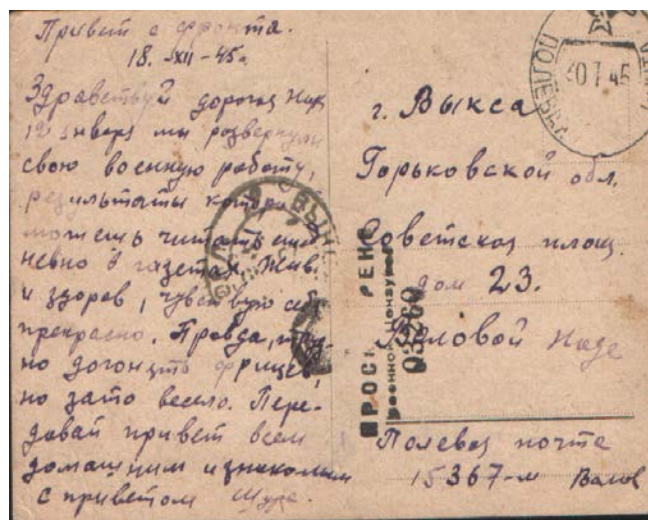 Привет с фронта.
18. XII - 45г
Здравствуй дорогая Надя
12 января мы развернули
свою военную работу,
результаты которой
можешь читать ежед
невно в газетах. Жив
и здоров, чувствую себя
прекрасно. Правда, труд
но догонять фрицев,
но зато весело. Пере-
давай привет всем
домашним и знакомым
с приветом Шура.
г. Выкса
Горьковской обл.
Советская площ.
дом 23.
Валовой Наде
Полевая почта
15367-м Валов
ПРОСМ РЕНО
Военной Цензурой
03260
ПОЛЕВАЯ
20 1 45
ВЫКСА